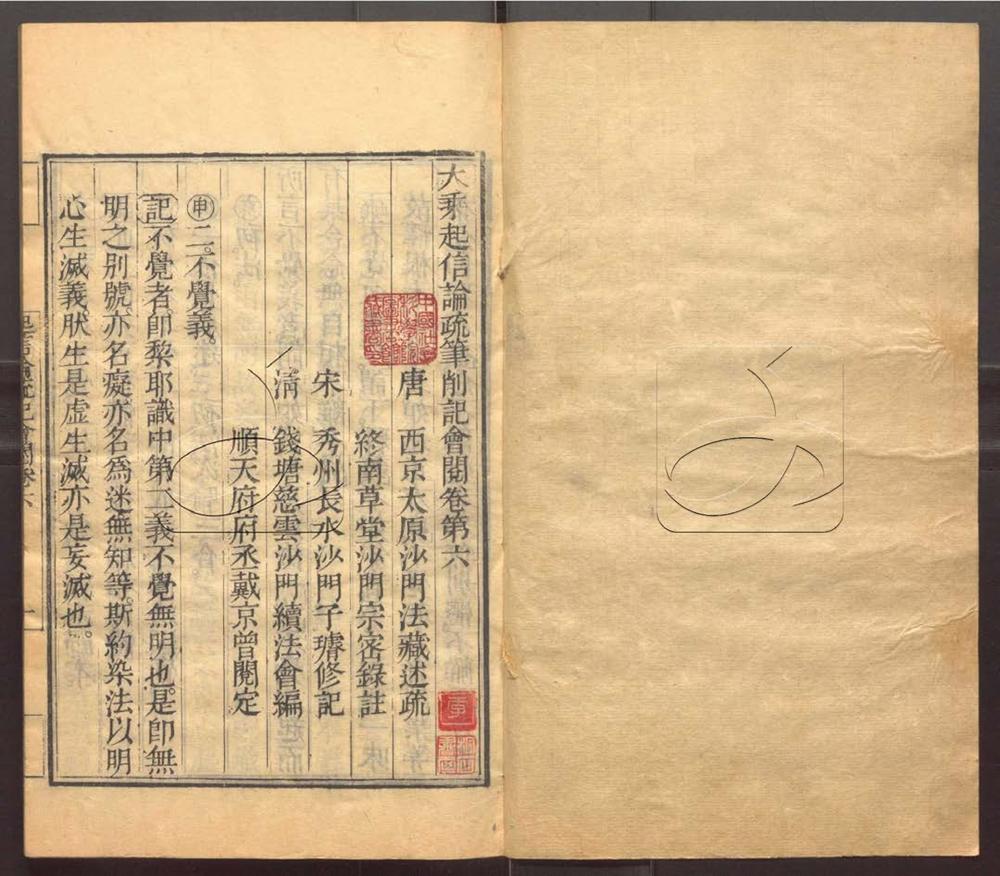 大乘起信論疏筆削記會閱卷第六
唐 西京太原沙門法藏述疏
終南草堂沙門宗密錄註
宋 秀州長水沙門子璿修記
清 錢塘慈雲沙門續法會編
順天府府丞戴京曾閱定
申二。不覺義。
記不覺者。卽棃耶識中第二義不覺無明也。是卽無
明之別號。亦名癡。亦名爲迷無知等。斯約染法以明
心生滅義。肰生是虛生。滅亦是妄滅也。